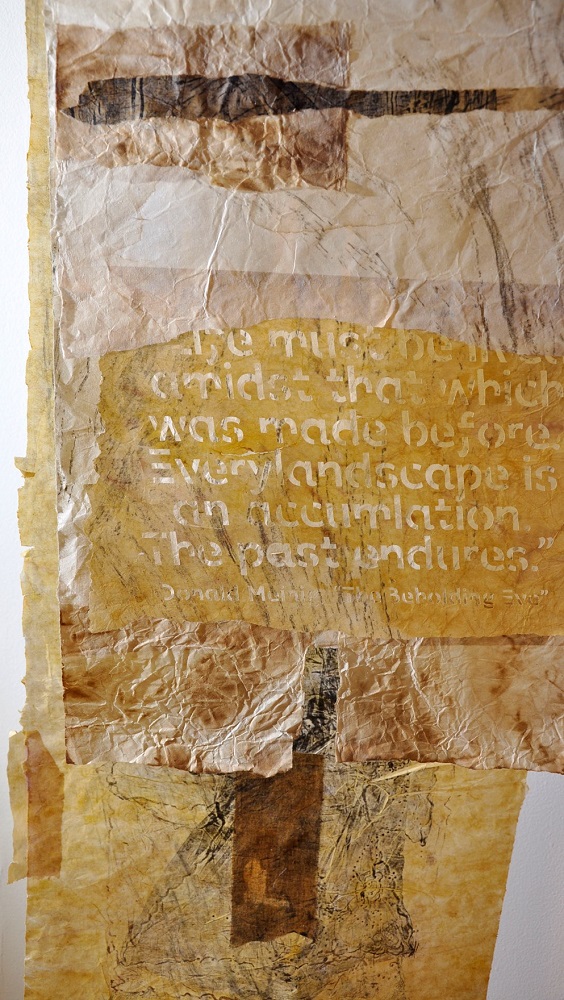 "Life must be lived
amidst that which
was made before.
Every landscape is
an accumlation.
The past endures."
Donald Meinig "The Beholding Eye"